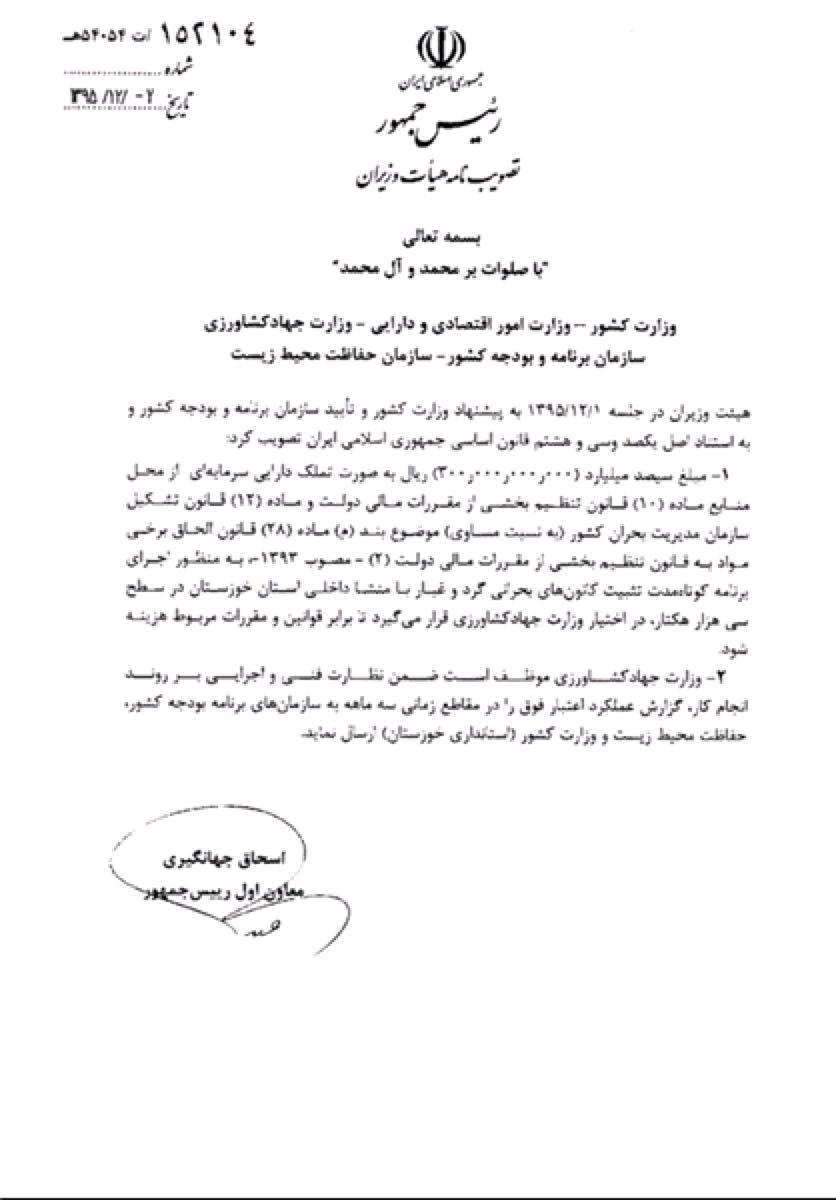 ۱۵۲۱۰۴ /ت ۵۴۰۵۴هـ
شماره
تاریخ ۱۳۹۵/۱۲/ ۰۲
جمهوری اسلامی ایران
رئیس جمهور
تصویب نامه هیأت وزیران
بسمه تعالی
"با صلوات بر محمد و آل محمد"
وزارت کشور – وزارت امور اقتصادی و دارایی – وزارت جهادکشاورزی
سازمان برنامه و بودجه کشور – سازمان حفاظت محیط زیست
هیئت وزیران در جلسه ۱۳۹۵/۱۲/۱ به پیشنهاد وزارت کشور و تأیید سازمان برنامه و بودجه کشور و
به استناد اصل یکصد وسی و هشتم قانون اساسی جمهوری اسلامی ایران تصویب کرد:
۱- مبلغ سیصد میلیارد (۳۰۰٫۰۰۰٫۰۰۰٫۰۰۰) ریال به صورت تملک دارایی سرمایه‌ای از محل
منابع ماده (۱۰) قانون تنظیم بخشی از مقررات مالی دولت و ماده (۱۲) قانون تشکیل
سازمان مدیریت بحران کشور (به نسبت مساوی) موضوع بند (م) ماده (۲۸) قانون الحاق برخی
مواد به قانون تنظیم بخشی از مقررات مالی دولت (۲) - مصوب ۱۳۹۳-، به منظور اجرای
برنامه کوتاه‌مدت تثبیت کانون‌های بحرانی گرد و غبار با منشا داخلی استان خوزستان در سطح
سی هزار هکتار، در اختیار وزارت جهادکشاورزی قرار می‌گیرد تا برابر قوانین و مقررات مربوط هزینه
شود.
۲- وزارت جهادکشاورزی موظف است ضمن نظارت فنی و اجرایی بر روند
انجام کار، گزارش عملکرد اعتبار فوق را در مقاطع زمانی سه ماهه به سازمان‌های برنامه بودجه کشور،
حفاظت محیط زیست و وزارت کشور (استانداری خوزستان) ارسال نماید.
اسحاق جهانگیری
معاون اول رییس‌جمهور